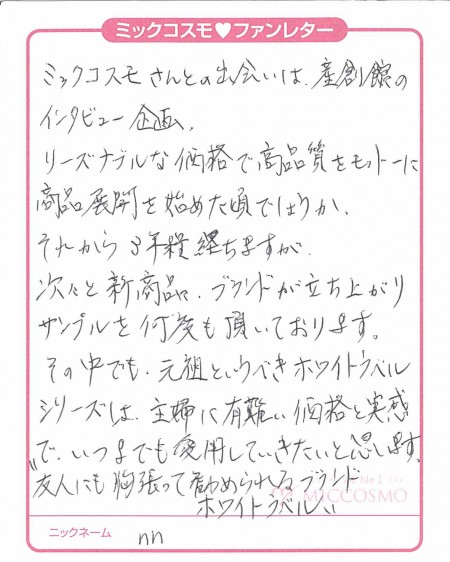 ミックコスモ♥ファンレター
ミックコスモさんとの出会いは、産創館の
インタビュー企画。
リーズナブルな価格で高品質をモットーに
商品展開を始めた頃でしょうか。
それから3年程経ちますが、
次々と新商品、ブランドが立ち上がり
サンプルを何度も頂いております。
その中でも、元祖というべきホワイトラベル
シリーズは、主婦に有難い価格と実感
で、いつまでも愛用していきたいと思います。
"友人にも胸張って勧められるブランド
ホワイトラベル"
MICCOSMO
ニックネーム nn